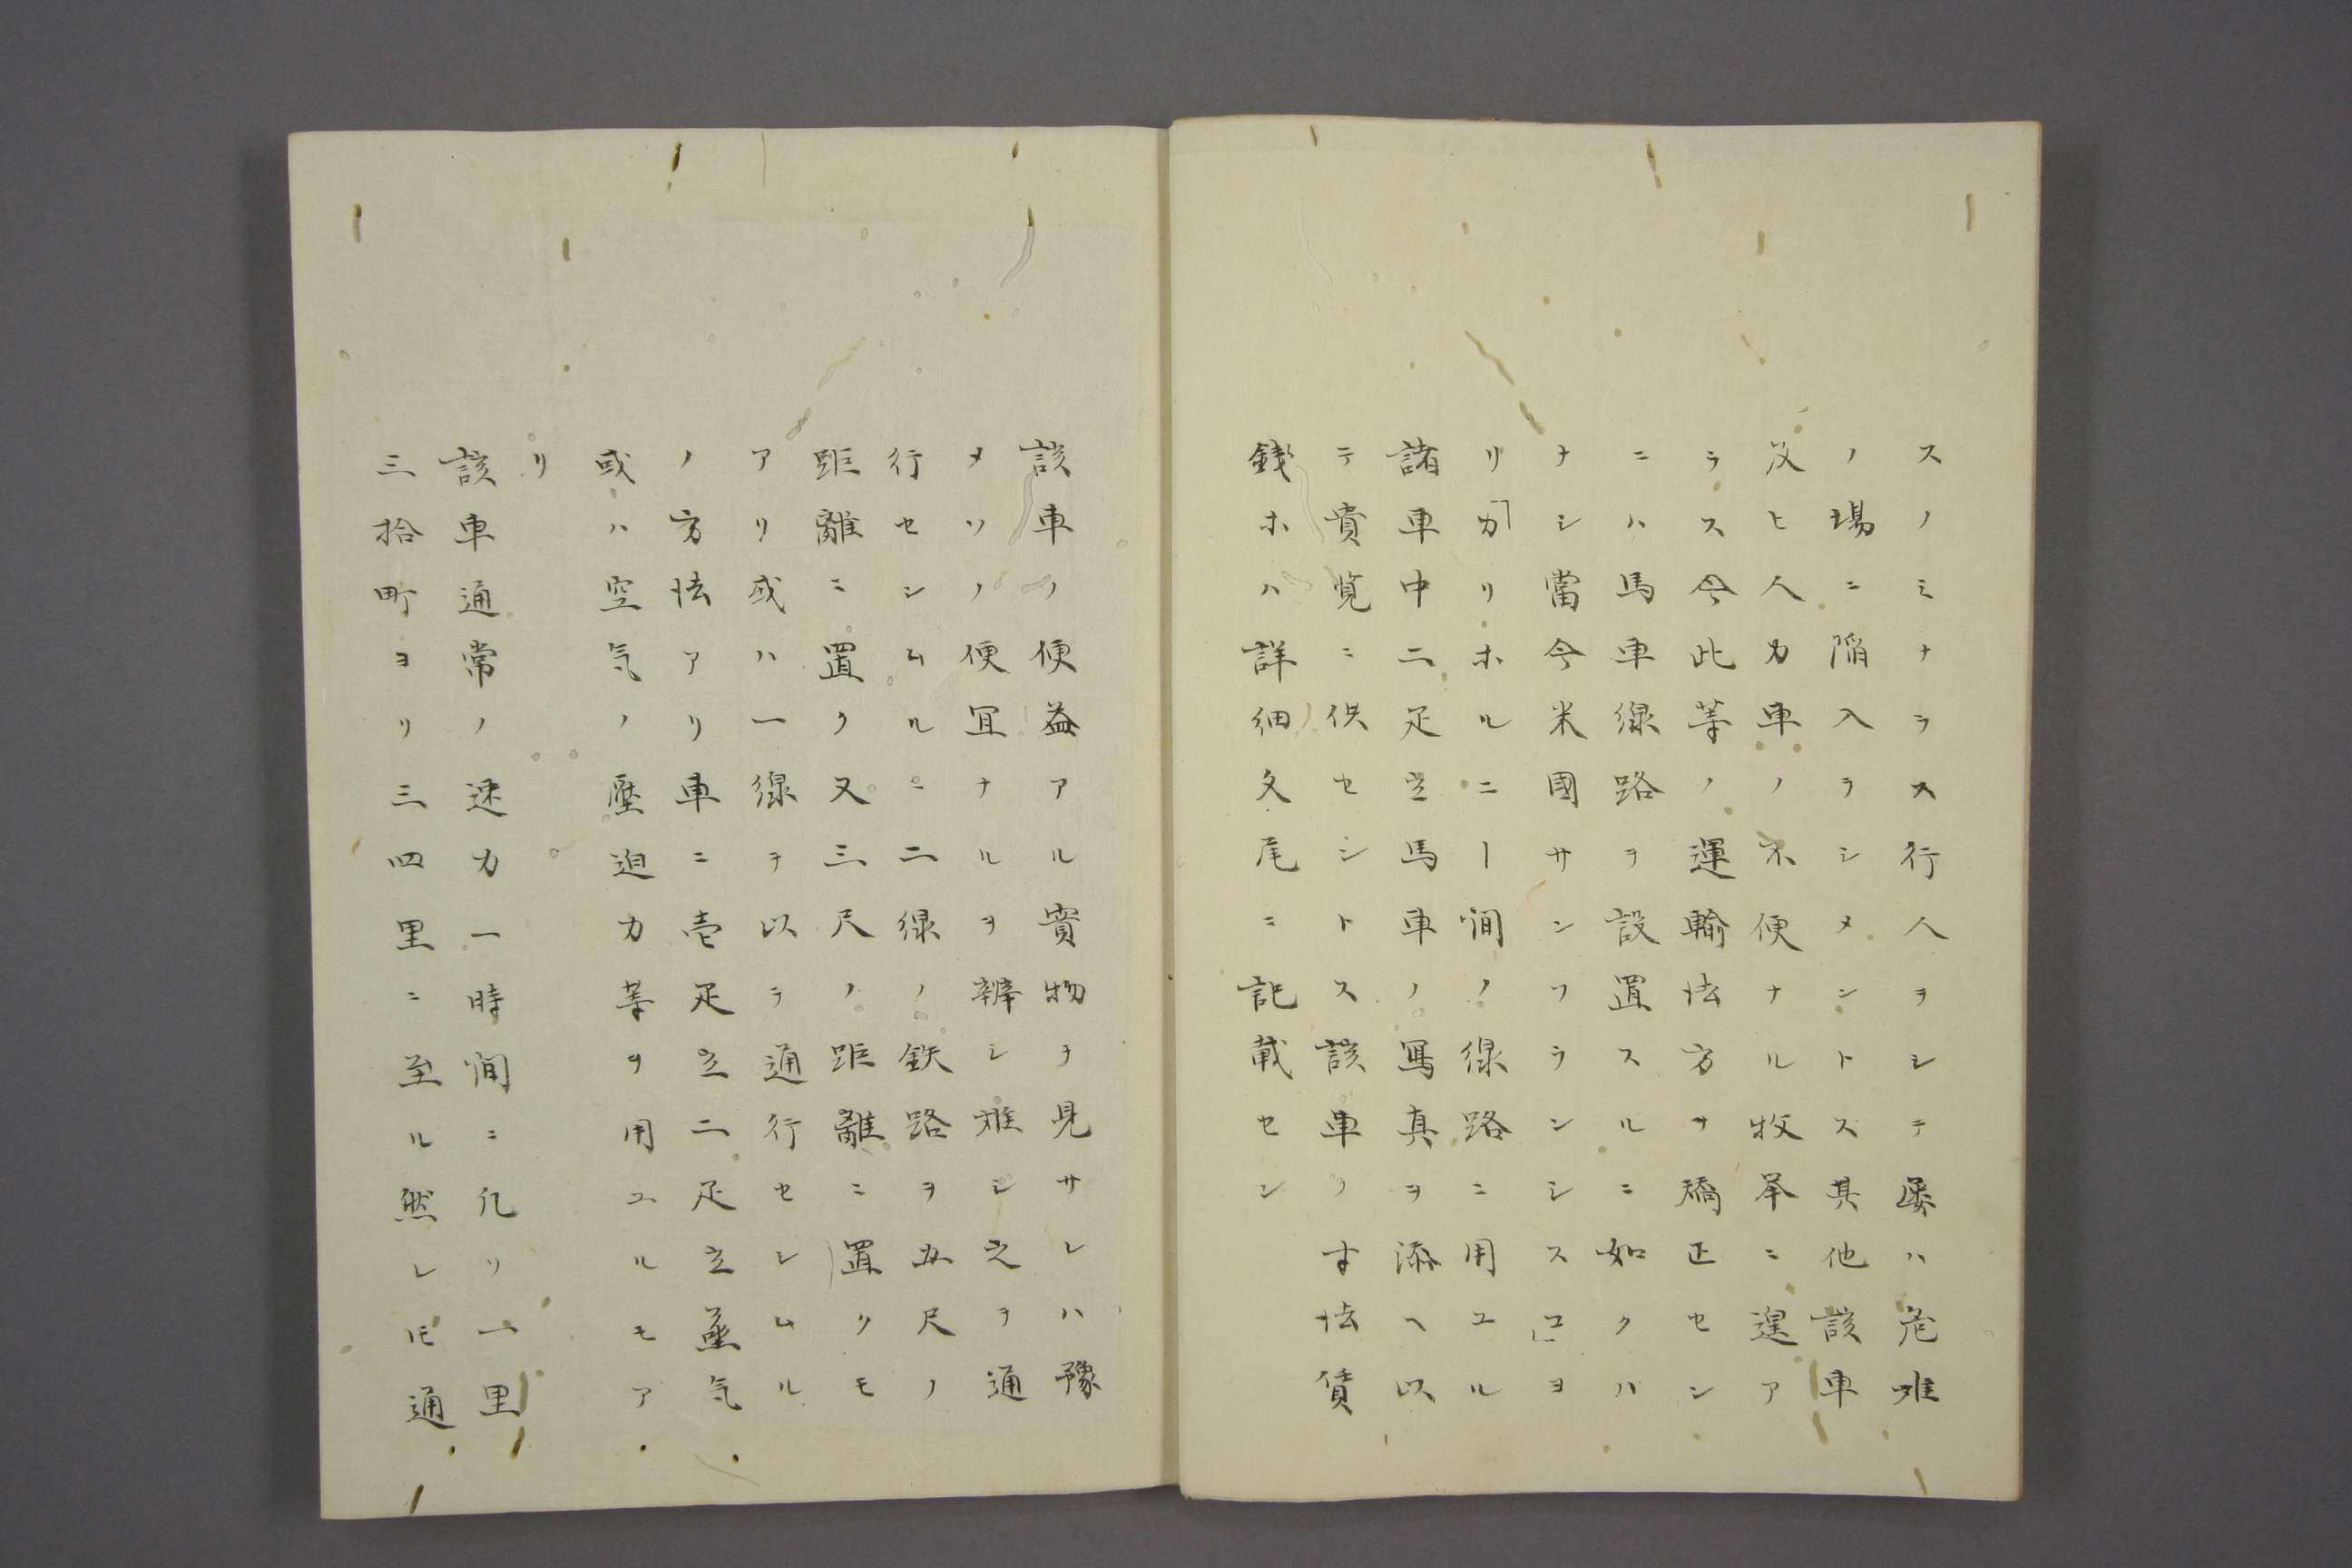 スノミナラス行人ヲシテ屡ハ危难
ノ場ニ陥入ラシメントス其他該車
及ヒ人力車ノ不便ナル牧挙ニ遑ア
ラス今此等ノ運輸法方ヲ矯正セン
ニハ馬車線路ヲ設置スルニ如クハ
ナシ當今米國サンフランシスコ」ヨ
リ「カリホルニー間ノ線路ニ用ユル
諸車中二疋立馬車ノ寫真ヲ添ヘ以
テ貴覧ニ供セントス該車ノ寸法賃
銭ホハ詳細文尾ニ記載セン
該車ノ便益アル實物ヲ見サレハ豫
メソノ便宜ナルヲ辨シ难シ之ヲ通
行セシムルニ二線ノ鉄路ヲ五尺ノ
距離ニ置ク又三尺ノ距離ニ置クモ
アリ或ハ一線ヲ以テ通行セシムル
ノ方法アリ車ニ壱疋立二疋立蒸気
或ハ空気ノ壓迫力等ヲ用ユルモア
リ
該車通常ノ速力一時間ニ凡リ一里
三拾町ヨリ三四里ニ至ル然レ𪜈通